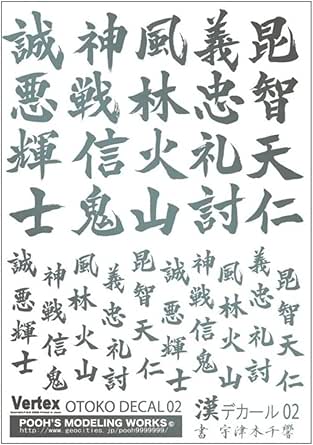 昆智天仁
義忠礼討
風林火山
神戦信鬼
誠悪輝士
昆智天仁
義忠礼討
風林火山
神戦信鬼
誠悪輝士
昆智天仁
義忠礼討
風林火山
神戦信鬼
誠悪輝士
Vertex OTOKO DECAL 02
POOH'S MODELING WORKS©
http://www.geocities.jp/pooh9999999/
漢デカール 02
書 宇津木千